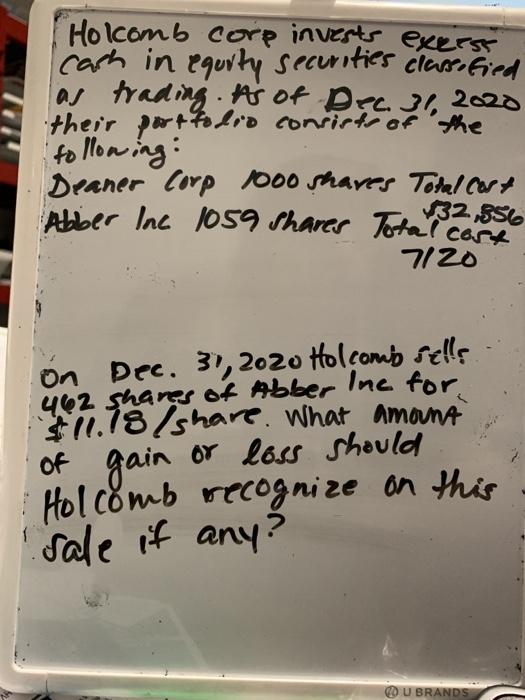 Holcomb corp invests excess
cash in equity securities classified
as trading. As of Dec. 31, 2020
their portfolio consists of the
following:
Deaner Corp 1000 shares Total Cost
$32,856
Abber Inc 1059 shares Total cost
7120
On Dec. 31, 2020 Holcomb sells
462 shares of Abber Inc for
$11.18/share. What amount
of gain or loss should
Holcomb recognize on this
sale if any?
U BRANDS